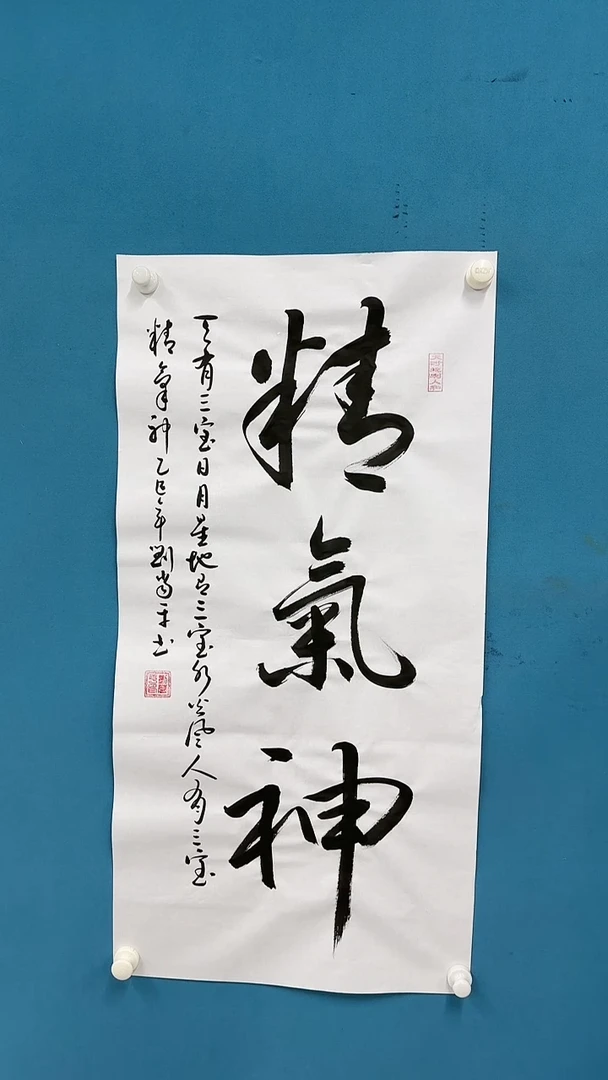 精氣神
天有三宝日月星地有三宝水火風人有三宝
精氣神乙巳年劉尚平书